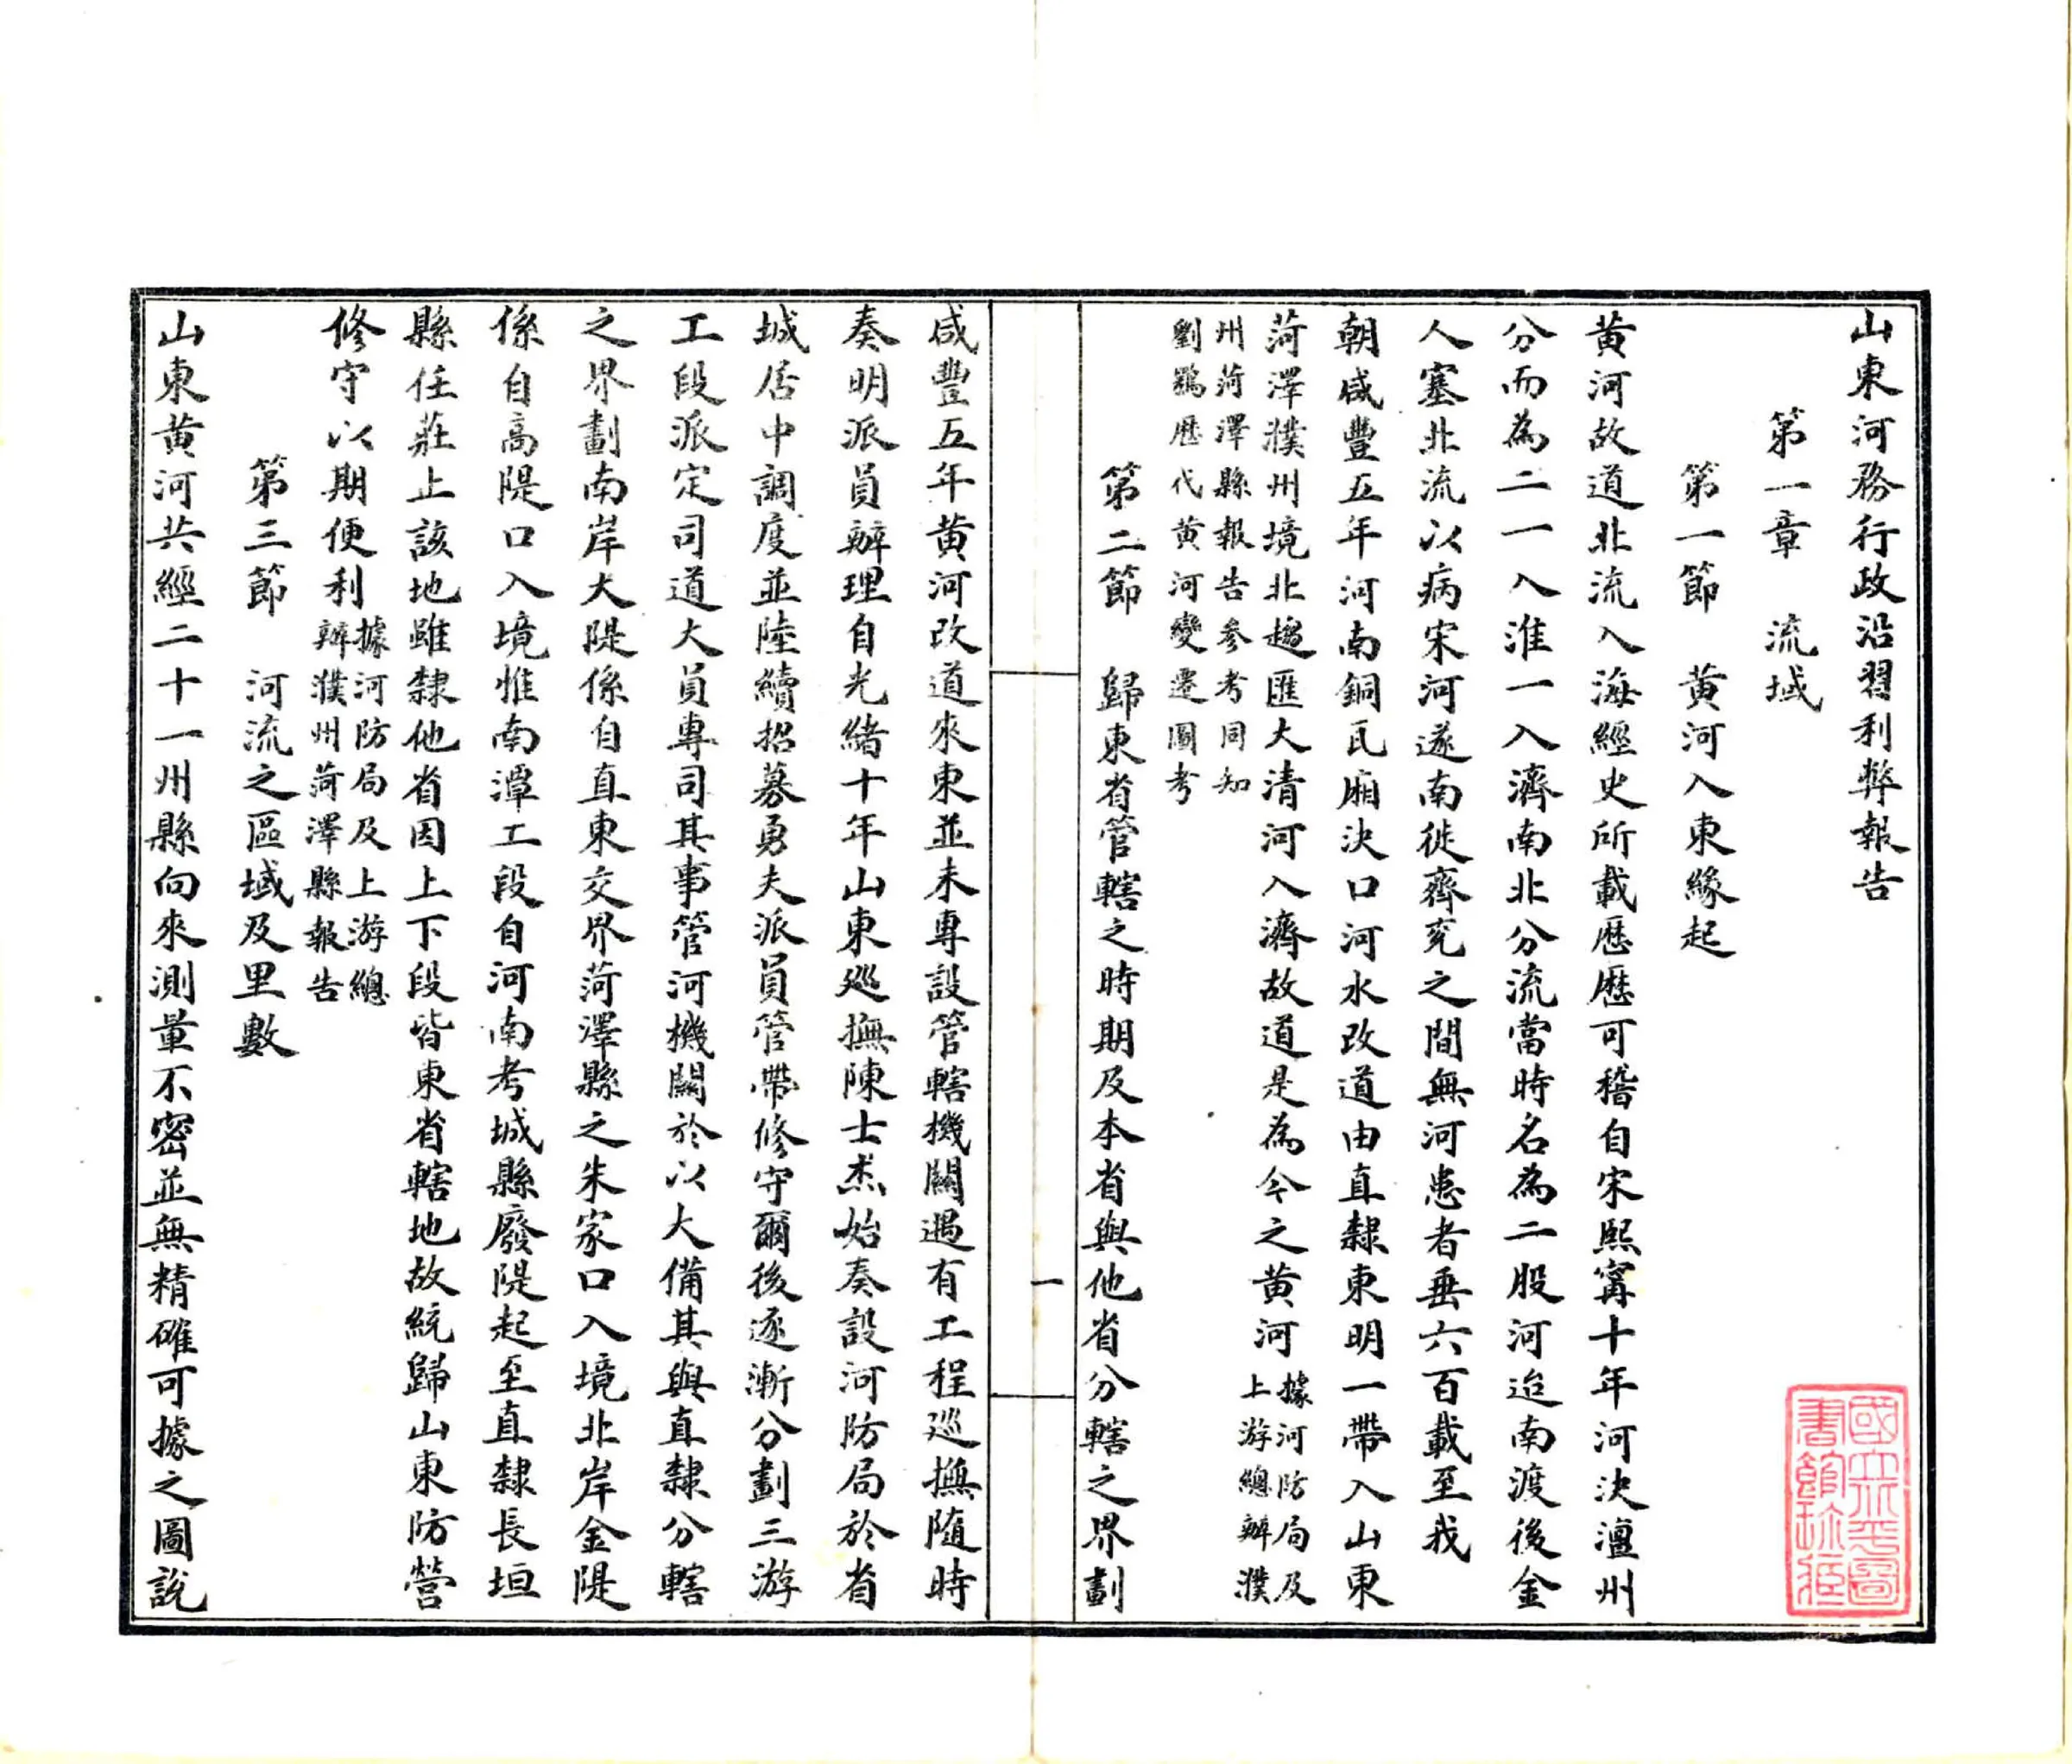 山東河務行政沿習利弊報告
第一章　流域
第一節　黃河入東緣起
黃河故道北流入海經史所載歷歷可稽自宋熙甯十年河決澶州
分而為二一入淮一入濟南北分流當時名為二股河迨南渡後金
人塞北流以病宋河遂南徙齊兗之間無河患者垂六百載至我
朝咸豐五年河南銅瓦廂決口河水改道由直隸東明一帶入山東
菏澤濮州境北趨匯大清河入濟故道是為今之黃河據河防局及
上游總辦濮
州菏澤縣報告參考同知
劉鶚歷代黃河變遷圖考
第二節　歸東省管轄之時期及本省與他省分轄之界劃
一
咸豐五年黃河改道來東並未專設管轄機關遇有工程巡撫隨時
奏明派員辦理自光緒十年山東巡撫陳士杰始奏設河防局於省
城居中調度並陸續招募勇夫派員管帶修守爾後逐漸分劃三游
工段派定司道大員專司其事管河機關於以大備其與直隸分轄
之界劃南岸大隄係自直東交界菏澤縣之朱家口入境北岸金隄
係自高隄口入境惟南潭工段自河南考城縣廢隄起至直隸長垣
縣任莊止該地雖隸他省因上下段皆東省轄地故統歸山東防營
修守以期便利據河防局及上游總
辦濮州菏澤縣報告
第三節　河流之區域及里數
山東黃河共經二十一州縣向來測量不密並無精確可據之圖說
國立北平圖
書館珍藏